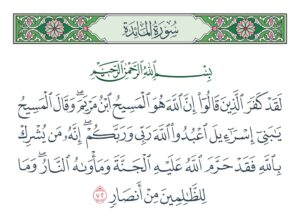 سُورَةُ المَائِدَةِ
بِسْمِ ٱللَّهِ ٱلرَّحْمَٰنِ ٱلرَّحِيمِ
لَقَدْ كَفَرَ ٱلَّذِينَ قَالُوٓا۟ إِنَّ ٱللَّهَ هُوَ ٱلْمَسِيحُ ٱبْنُ مَرْيَمَ ۖ وَقَالَ ٱلْمَسِيحُ
يَٰبَنِىٓ إِسْرَٰٓءِيلَ ٱعْبُدُوا۟ ٱللَّهَ رَبِّى وَرَبَّكُمْ ۖ إِنَّهُۥ مَن يُشْرِكْ
بِٱللَّهِ فَقَدْ حَرَّمَ ٱللَّهُ عَلَيْهِ ٱلْجَنَّةَ وَمَأْوَىٰهُ ٱلنَّارُ ۖ وَمَا
لِلظَّٰلِمِينَ مِنْ أَنصَارٍ ٧٢